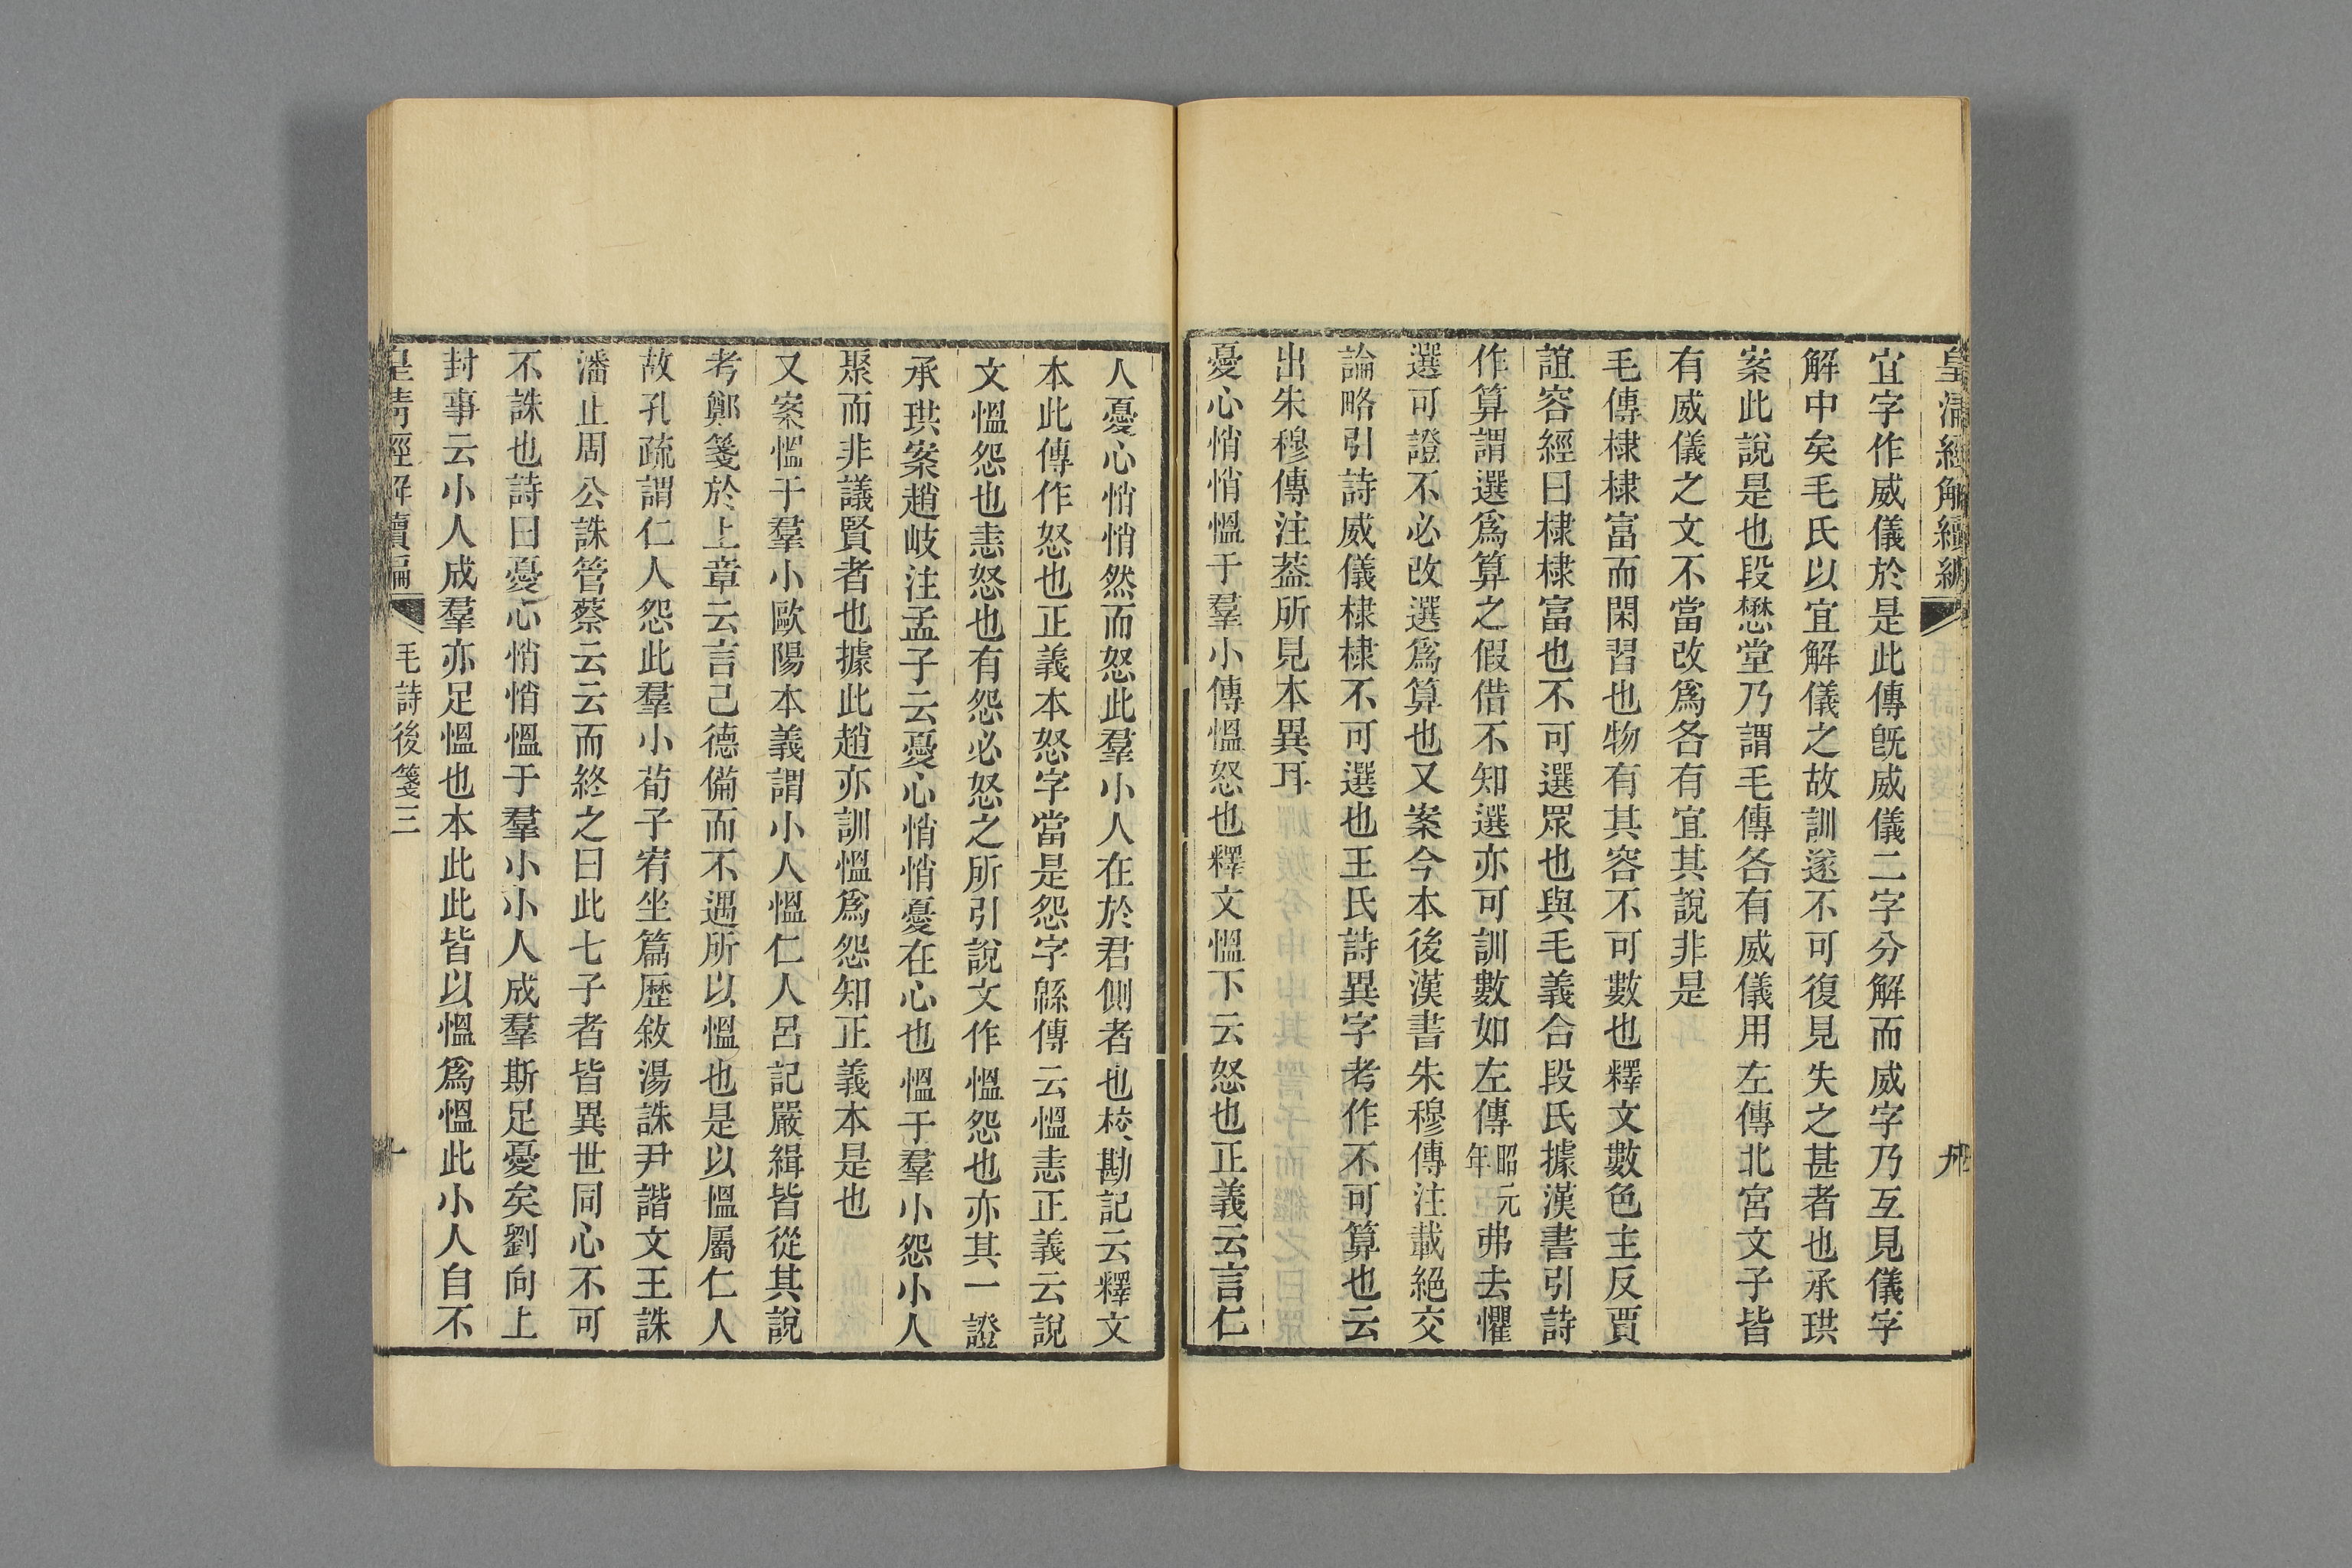 皇清經解續編
九
宜字作威儀於是此傳既威儀二字分解而威字乃互見儀字
解中矣毛氏以宜解儀之故訓遂不可復見失之甚者也承珙
案此說是也段懋堂乃謂毛傳各有威儀用左傳北宮文子皆
有威儀之文不當改爲各有宜其說非是
毛傳棣棣富而閑習也物有其容不可數也釋文數色主反賈
誼容經曰棣棣富也不可選眾也與毛義合段氏據漢書引詩
作算謂選爲算之假借不知選亦可訓數如左傳昭元年弗去懼
選可證不必改選爲算也又案今本後漢書朱穆傳注載絕交
論略引詩威儀棣棣不可選也王氏詩異字考作不可算也云
出朱穆傳注葢所見本異耳
憂心悄悄慍于羣小傳慍怒也釋文慍下云怒也正義云言仁
人憂心悄悄然而怒此羣小人在於君側者也挍勘記云釋文
本此傳作怒也正義本怒字當是怨字緜傳云慍恚正義云說
文慍怨也恚怒也有怨必怒之所引說文作慍怨也亦其一證
承珙案趙岐注孟子云憂心悄悄憂在心也慍于羣小怨小人
聚而非議賢者也據此趙亦訓慍爲怨知正義本是也
又案慍于羣小歐陽本義謂小人慍仁人呂記嚴緝皆從其說
考鄭箋於上章云言己德備而不遇所以慍也是以慍屬仁人
故孔疏謂仁人怨此羣小荀子宥坐篇歷敘湯誅尹諧文王誅
潘止周公誅管蔡云云而終之曰此七子者皆異世同心不可
不誅也詩曰憂心悄悄慍于羣小小人成羣斯足憂矣劉向上
封事云小人成羣亦足慍也本此此皆以慍爲慍此小人自不
皇清經解續編
毛詩後箋三
十